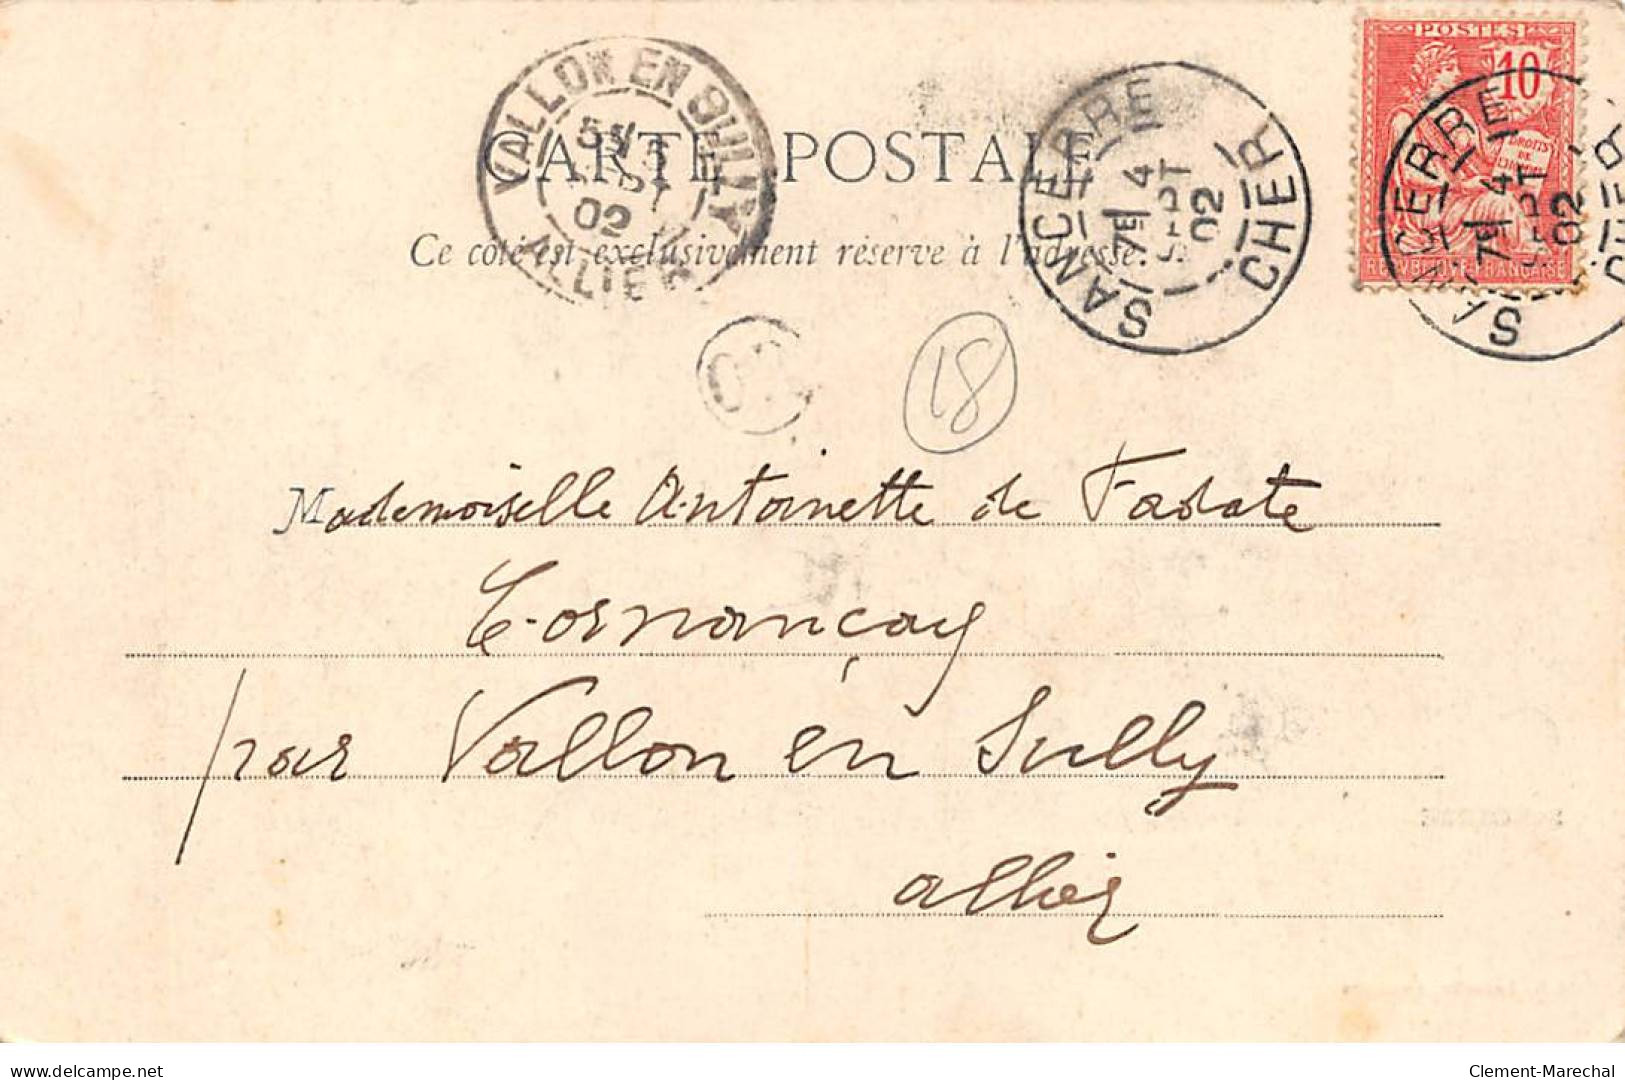 POSTES
10
DROITS
DE
REPVBLIQVE FRANÇAISE
VALLON EN SULLY
5
02
ALLIER
SANCERRE
7E 4
SEPT
02
CHER
SANCERRE
7E 4
SEPT
02
CHER
CARTE POSTALE
Ce côté est exclusivement réservé à l'adresse.
18
Mademoiselle Antoinette de Fadate
par Vallon en Sully
allier
Clement-Marechal